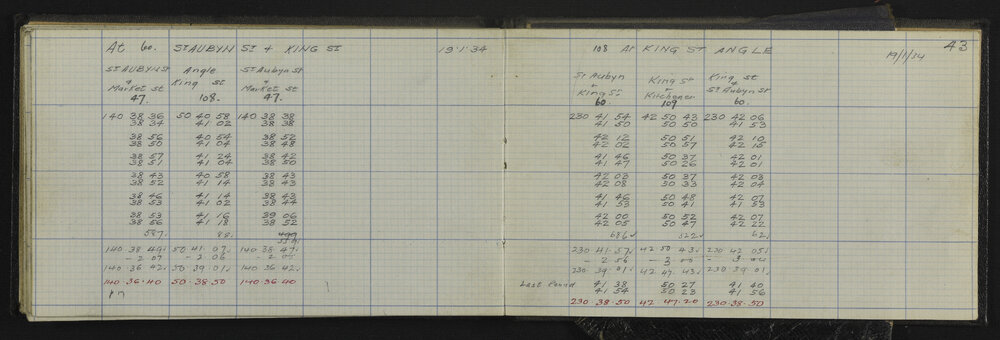 At 60. St AUBYN St + KING St 19.1.34
St AUBYN St Angle St Aubyn St
+ King St +
Market St Market St
47. 108. 47.
140 38 36 50 40 58 140 38 38
38 34 41 02 38 38
38 56 40 54 38 52
38 50 41 04 38 48
38 57 41 24 38 42
38 51 41 04 38 50
38 43 40 58 38 43
38 52 41 14 38 43
38 46 41 14 38 43
38 53 41 02 38 44
38 53 41 16 39 06
38 56 41 18 38 52
587. 88.
140 38 49 50 41 07 140 38 47
- 2 07 - 2 06 - 2 05
140 36 42 50 39 01 140 36 42
140.36.40 50.38.50 140.36.40
43
108 At KING ST ANGLE 19/1/34
St Aubyn King St King St
+ + +
King St Kitchener St Aubyn St
60. 109 60.
230 41 54 42 50 43 230 42 06
41 50 50 50 41 53
42 12 50 51 42 10
42 02 50 57 42 15
41 46 50 37 42 01
41 47 50 26 42 01
42 03 50 37 42 03
42 08 50 33 42 04
41 46 50 48 42 07
41 53 50 41 41 53
42 00 50 52 42 07
42 05 50 47 42 22
686 522 621
230 41 57 42 50 43 230 42 05
- 2 56 - 3 00 - 3 04
230 39 01 42 47 43 230 39 01
Last Round 41 38 50 27 41 40
41 54 50 23 41 56
230.38.50 42 47.20 230.38.50